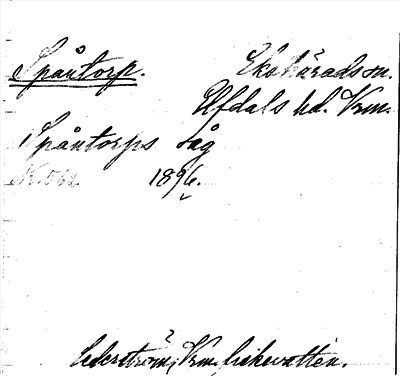 Spåntorp. Ekshärads sn.
Elfdals hd. Vrm.
Spåntorps såg
N. 562 1896.
Cederström, Vrm. fiskevatten.